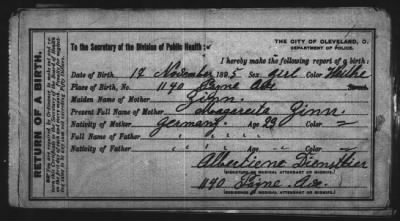 THE CITY OF CLEVELAND, O.
DEPARTMENT OF POLICE.
To the Secretary of the Division of Public Health:
I hereby make the following report of a birth:
RETURN OF A BIRTH.
Date of Birth 17 November 1895 Sex girl Color White
Place of Birth, No. 1190 Payne Ave Street.
Maiden Name of Mother Zinn
Present Full Name of Mother Margareta Zinn
Nativity of Mother Germany Age 23 Color "
Full Name of Father " " "
Nativity of Father " Age " Color "
Albertiene Diensthier
(SIGNATURE OF MEDICAL ATTENDANT OR MIDWIFE.)
1190 Payne Ave.
(RESIDENCE OF MEDICAL ATTENDANT OR MIDWIFE.)